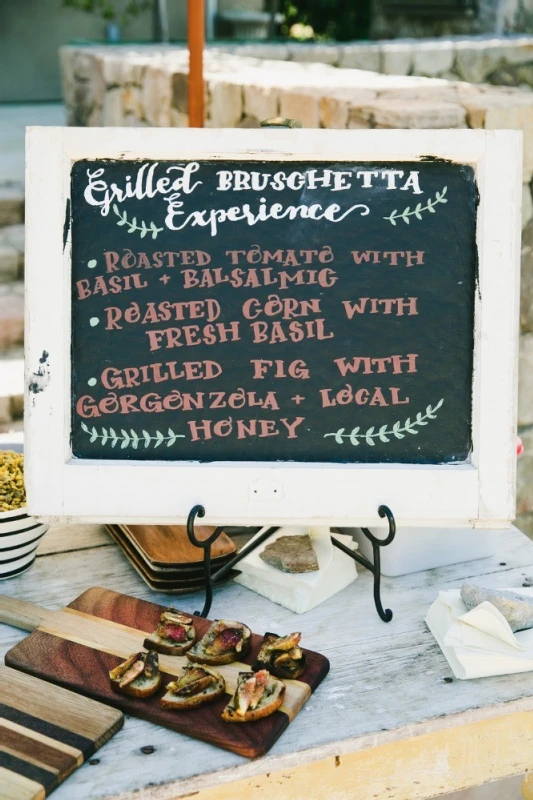 Grilled BRUSCHETTA
Experience
• ROASTED TOMATO WITH
BASIL + BALSALMIG
• ROASTED CORN WITH
FRESH BASIL
• GRILLED FIG WITH
GORGONZOLA + LOCAL
HONEY